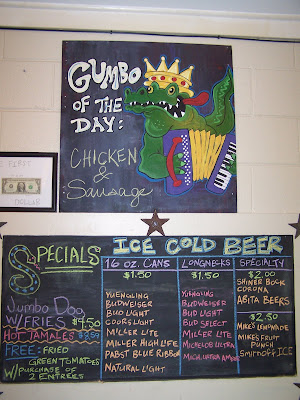 GUMBO
OF THE
DAY:
CHICKEN
&
Sausage
FIRST
DOLLAR
SPECIALS
Jumbo Dog
W/FRIES $4.50
HOT TAMALES
FREE: FRIED
GREEN TOMATOES
W/PURCHASE OF
2 ENTREES
ICE COLD BEER
16 OZ. CANS
$1.50
YUENGLING
BUDWEISER
BUD LIGHT
COORS LIGHT
MILLER LITE
MILLER HIGH LIFE
PABST BLUE RIBBON
NATURAL LIGHT
LONGNECKS
$1.50
YUENGLING
BUDWEISER
BUD LIGHT
BUD SELECT
MILLER LITE
MICHELOB ULTRA
MICH. ULTRA AMBER
SPECIALTY
$2.00
SHINER BOCK
CORONA
ABITA BEERS
$2.50
MIKES LEMONADE
MIKES FRUIT
PUNCH
SMIRNOFF ICE